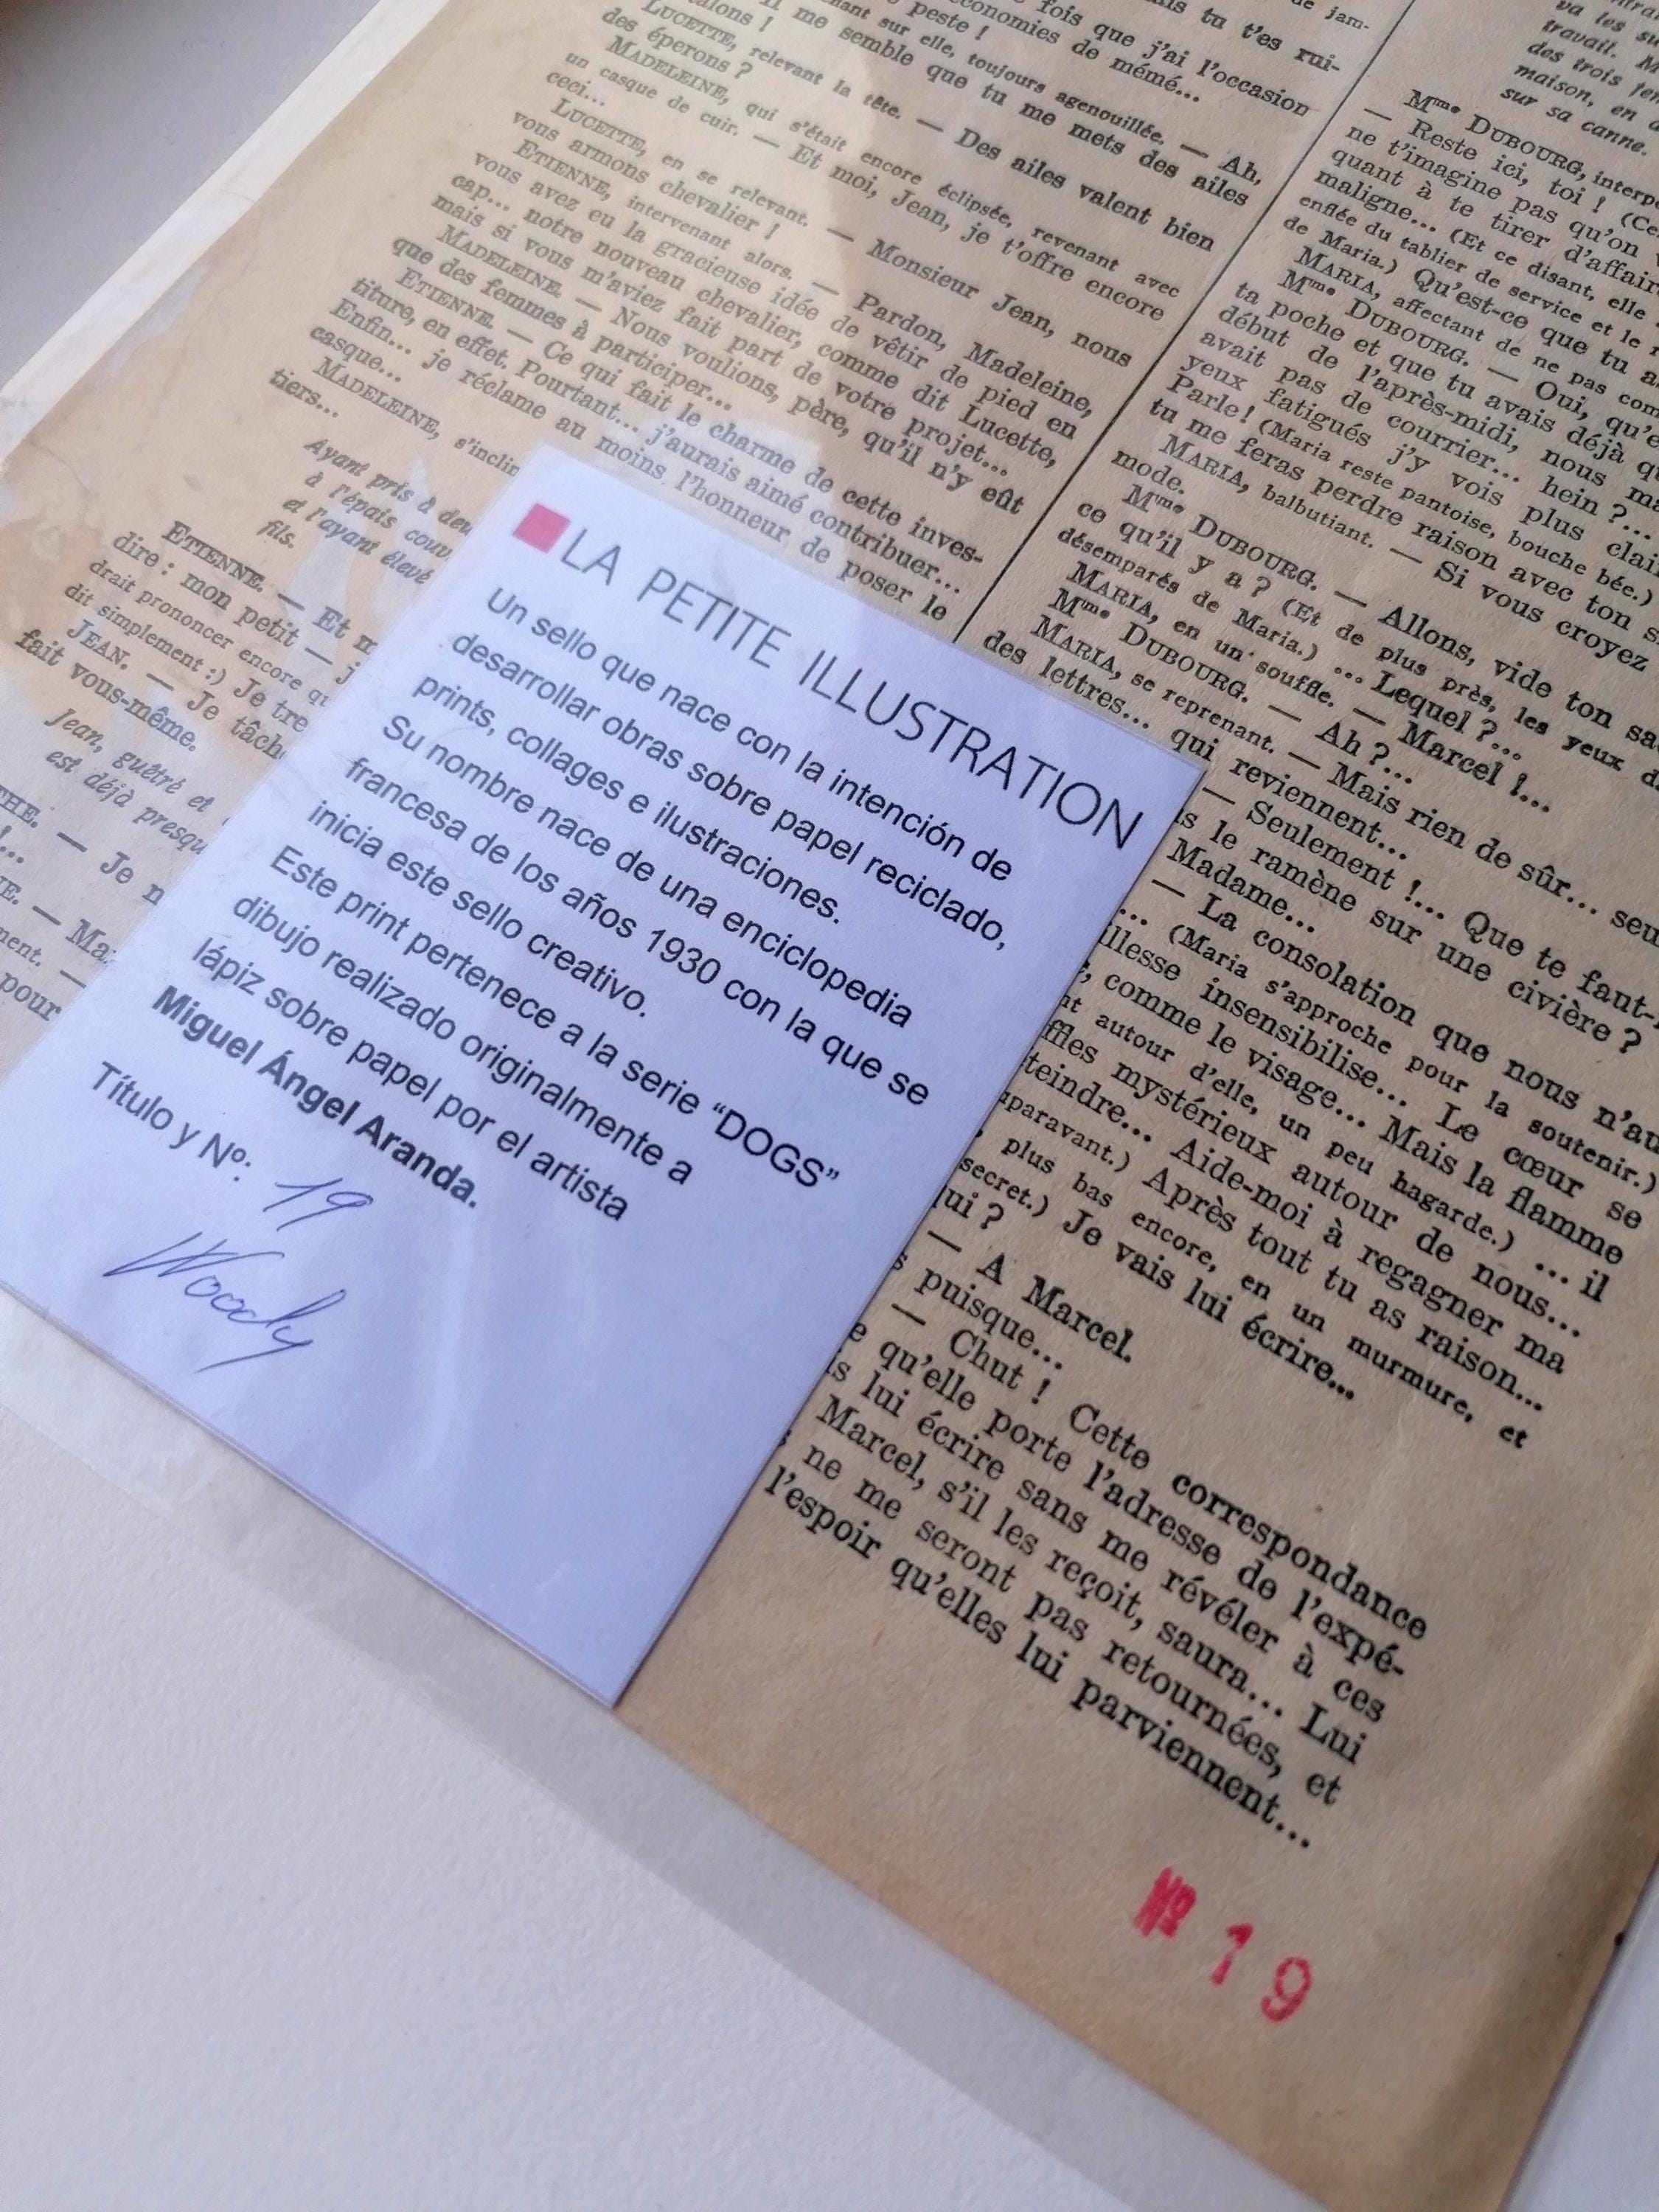 de jam-
tu t'es rui-
fois que j'ai l'occasion
économies de mémé...
peste !
sur elle, toujours agenouillée. — Ah,
il me semble que tu me mets des ailes
talons !
LUCETTE, relevant la tête. — Des ailes valent bien
des éperons ?
MADELEINE, qui s'était encore éclipsée, revenant avec
un casque de cuir. — Et moi, Jean, je t'offre encore
ceci...
LUCETTE, en se relevant. — Monsieur Jean, nous
vous armons chevalier !
ETIENNE, intervenant alors. — Pardon, Madeleine,
vous avez eu la gracieuse idée de vêtir de pied en
cap... notre nouveau chevalier, comme dit Lucette,
mais si vous m'aviez fait part de votre projet...
MADELEINE. — Nous voulions, père, qu'il n'y eût
que des femmes à participer...
ETIENNE. — Ce qui fait le charme de cette inves-
titure, en effet. Pourtant... j'aurais aimé contribuer...
Enfin... je réclame au moins l'honneur de poser le
casque...
MADELEINE, s'inclin
tiers...
Ayant pris à deu
à l'épais couv
et l'ayant élevé
fils.
ETIENNE. — Et m
dire : mon petit — j
drait prononcer encore qu
dit simplement :) Je tre
JEAN. — Je tâch
fait vous-même.
Jean, guêtré et
est déjà presqu
THE. — Je n
!...
NE. — Ma
ment. —
pour
va les su
travail. M
des trois fem
maison, en d
sur sa canne.
Mme DUBOURG, interp
— Reste ici, toi ! (Ce
ne t'imagine pas qu'on
quant à te tirer d'affair
maligne... (Et ce disant, elle
enflée du tablier de service et le r
de Maria.) Qu'est-ce que tu a
MARIA, affectant de ne pas com
Mme DUBOURG. — Oui, qu'e
ta poche et que tu avais déjà q
début de l'après-midi, nous m
avait pas de courrier... hein ?...
yeux fatigués j'y vois plus clai
Parle! (Maria reste pantoise, bouche bée.)
tu me feras perdre raison avec ton s
MARIA, balbutiant. — Si vous croyez
mode.
Mme DUBOURG. — Allons, vide ton sa
ce qu'il y a ? (Et de plus près, les yeux d
désemparés de Maria.) ... Lequel ?...
MARIA, en un souffle. — Marcel !...
Mme DUBOURG. — Ah ?...
MARIA, se reprenant. — Mais rien de sûr... seu
des lettres... qui reviennent...
— Seulement !... Que te faut-
s le ramène sur une civière ?
Madame...
— La consolation que nous n'au
... (Maria s'approche pour la soutenir.)
illesse insensibilise... Le cœur se
, comme le visage... Mais la flamme
nt autour d'elle, un peu hagarde.) ... il
ffles mystérieux autour de nous...
teindre... Aide-moi à regagner ma
uparavant.) Après tout tu as raison...
, plus bas encore, en un murmure, et
secret.) Je vais lui écrire...
ui ?
— A Marcel.
s puisque...
— Chut ! Cette correspondance
e qu'elle porte l'adresse de l'expé-
is lui écrire sans me révéler à ces
Marcel, s'il les reçoit, saura... Lui
; ne me seront pas retournées, et
l'espoir qu'elles lui parviennent...
LA PETITE ILLUSTRATION
Un sello que nace con la intención de
desarrollar obras sobre papel reciclado,
prints, collages e ilustraciones.
Su nombre nace de una enciclopedia
francesa de los años 1930 con la que se
inicia este sello creativo.
Este print pertenece a la serie “DOGS”
dibujo realizado originalmente a
lápiz sobre papel por el artista
Miguel Ángel Aranda.
Título y Nº: 19
Woody
Nº 19